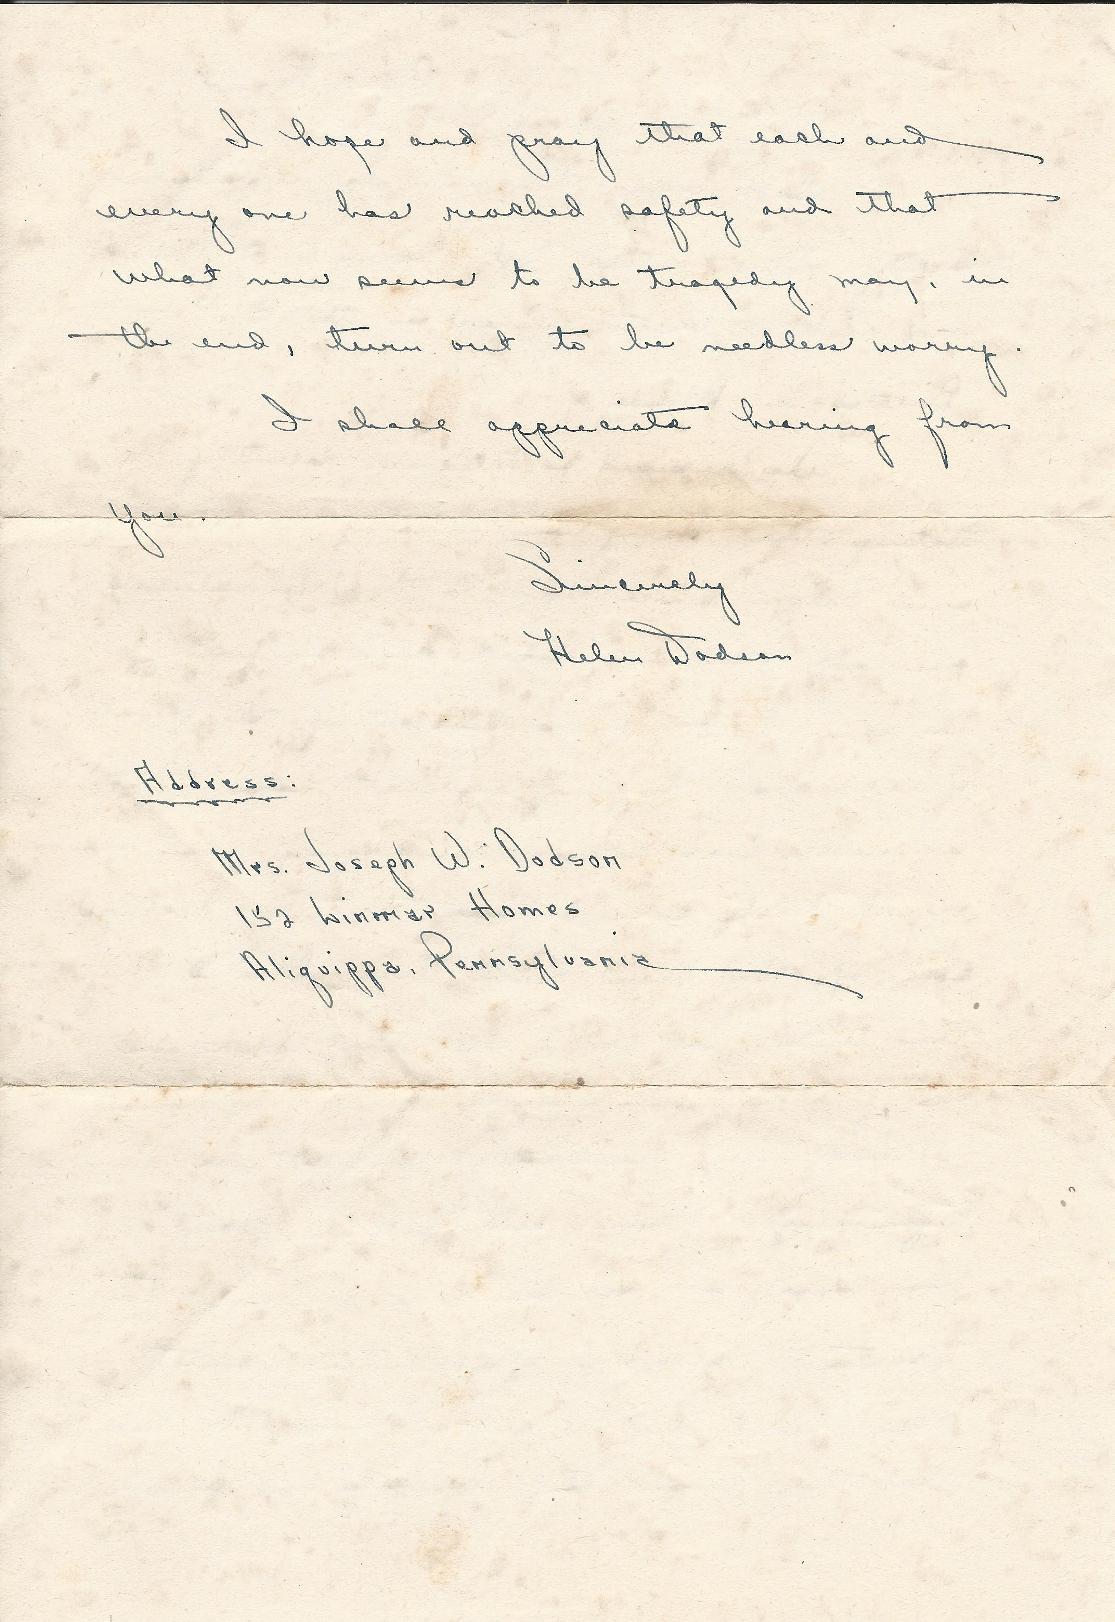 I hope and pray that each and
every one has reached safety and that
what now seems to be tragedy may, in
the end, turn out to be needless worry.
I shall appreciate hearing from
you.
Sincerely
Helen Dodson
Address:
Mrs. Joseph W. Dodson
152 Linmar Homes
Aliquippa, Pennsylvania